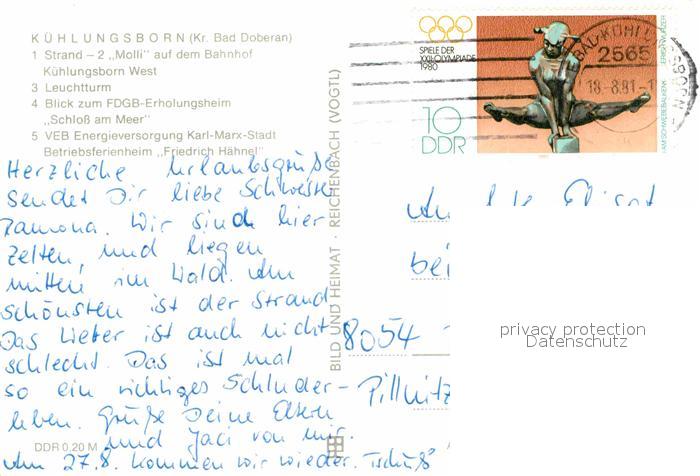 KÜHLUNGSBORN (Kr. Bad Doberan)
1 Strand – 2 „Molli" auf dem Bahnhof
Kühlungsborn West
3 Leuchtturm
4 Blick zum FDGB-Erholungsheim
„Schloß am Meer"
5 VEB Energieversorgung Karl-Marx-Stadt
Betriebsferienheim „Friedrich Hähnel"
Herzliche Urlaubsgrüße
sendet Dir liebe Schwester
Ramona. Wir sind hier
zelten, und liegen
mitten im Wald. Am
schönsten ist der Strand
Das Wetter ist auch nicht
schlecht. Das ist mal
so ein richtiges Schluder-
leben. Grüße Deine Eltern
und Jaci von mir.
Am 27.8. kommen wir wieder. Tschüß
DDR 0,20 M
BILD UND HEIMAT · REICHENBACH (VOGTL)
SPIELE DER
XXII. OLYMPIADE
1980
10
DDR
AM SCHWEBEBALKEN
2565
18-8.81-1
An
bei
8054
Pillnitz
privacy protection
Datenschutz